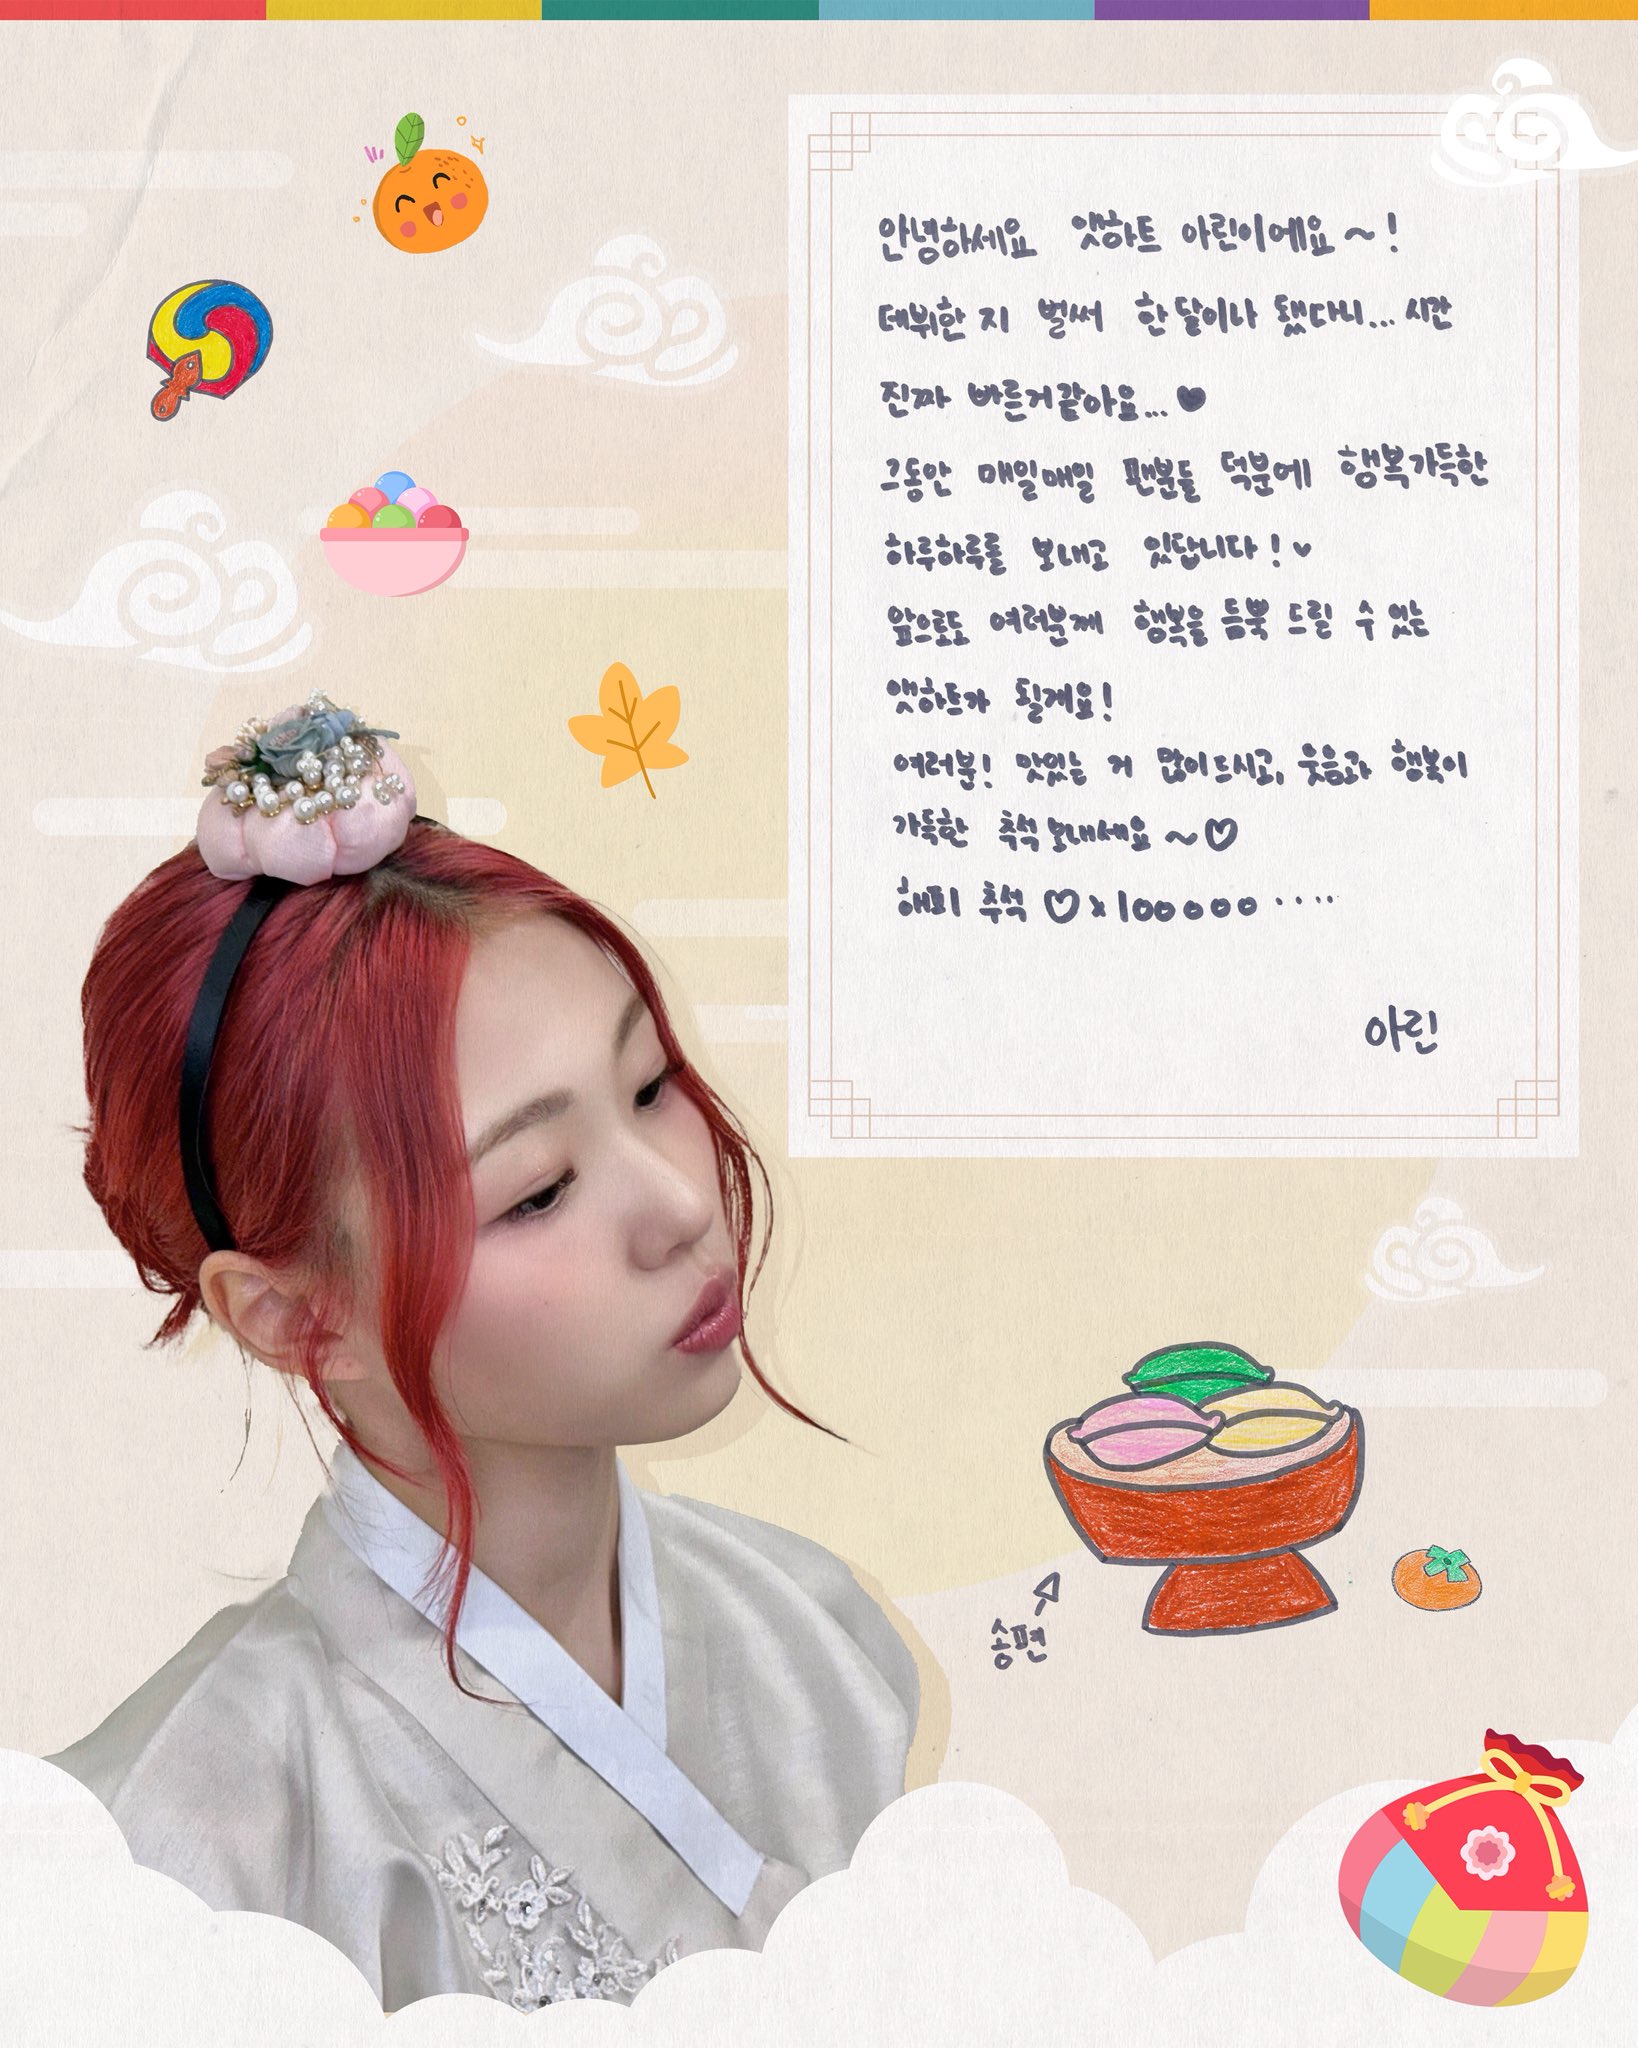 안녕하세요 앳하트 아린이에요~!
데뷔한 지 벌써 한 달이나 됐다니... 시간
진짜 빠른거같아요...♥
그동안 매일매일 팬분들 덕분에 행복가득한
하루하루를 보내고 있답니다!♥
앞으로도 여러분께 행복을 듬뿍 드릴 수 있는
앳하트가 될게요!
여러분! 맛있는 거 많이드시고, 웃음과 행복이
가득한 추석보내세요~♡
해피 추석 ♡x100000····
아린
송편